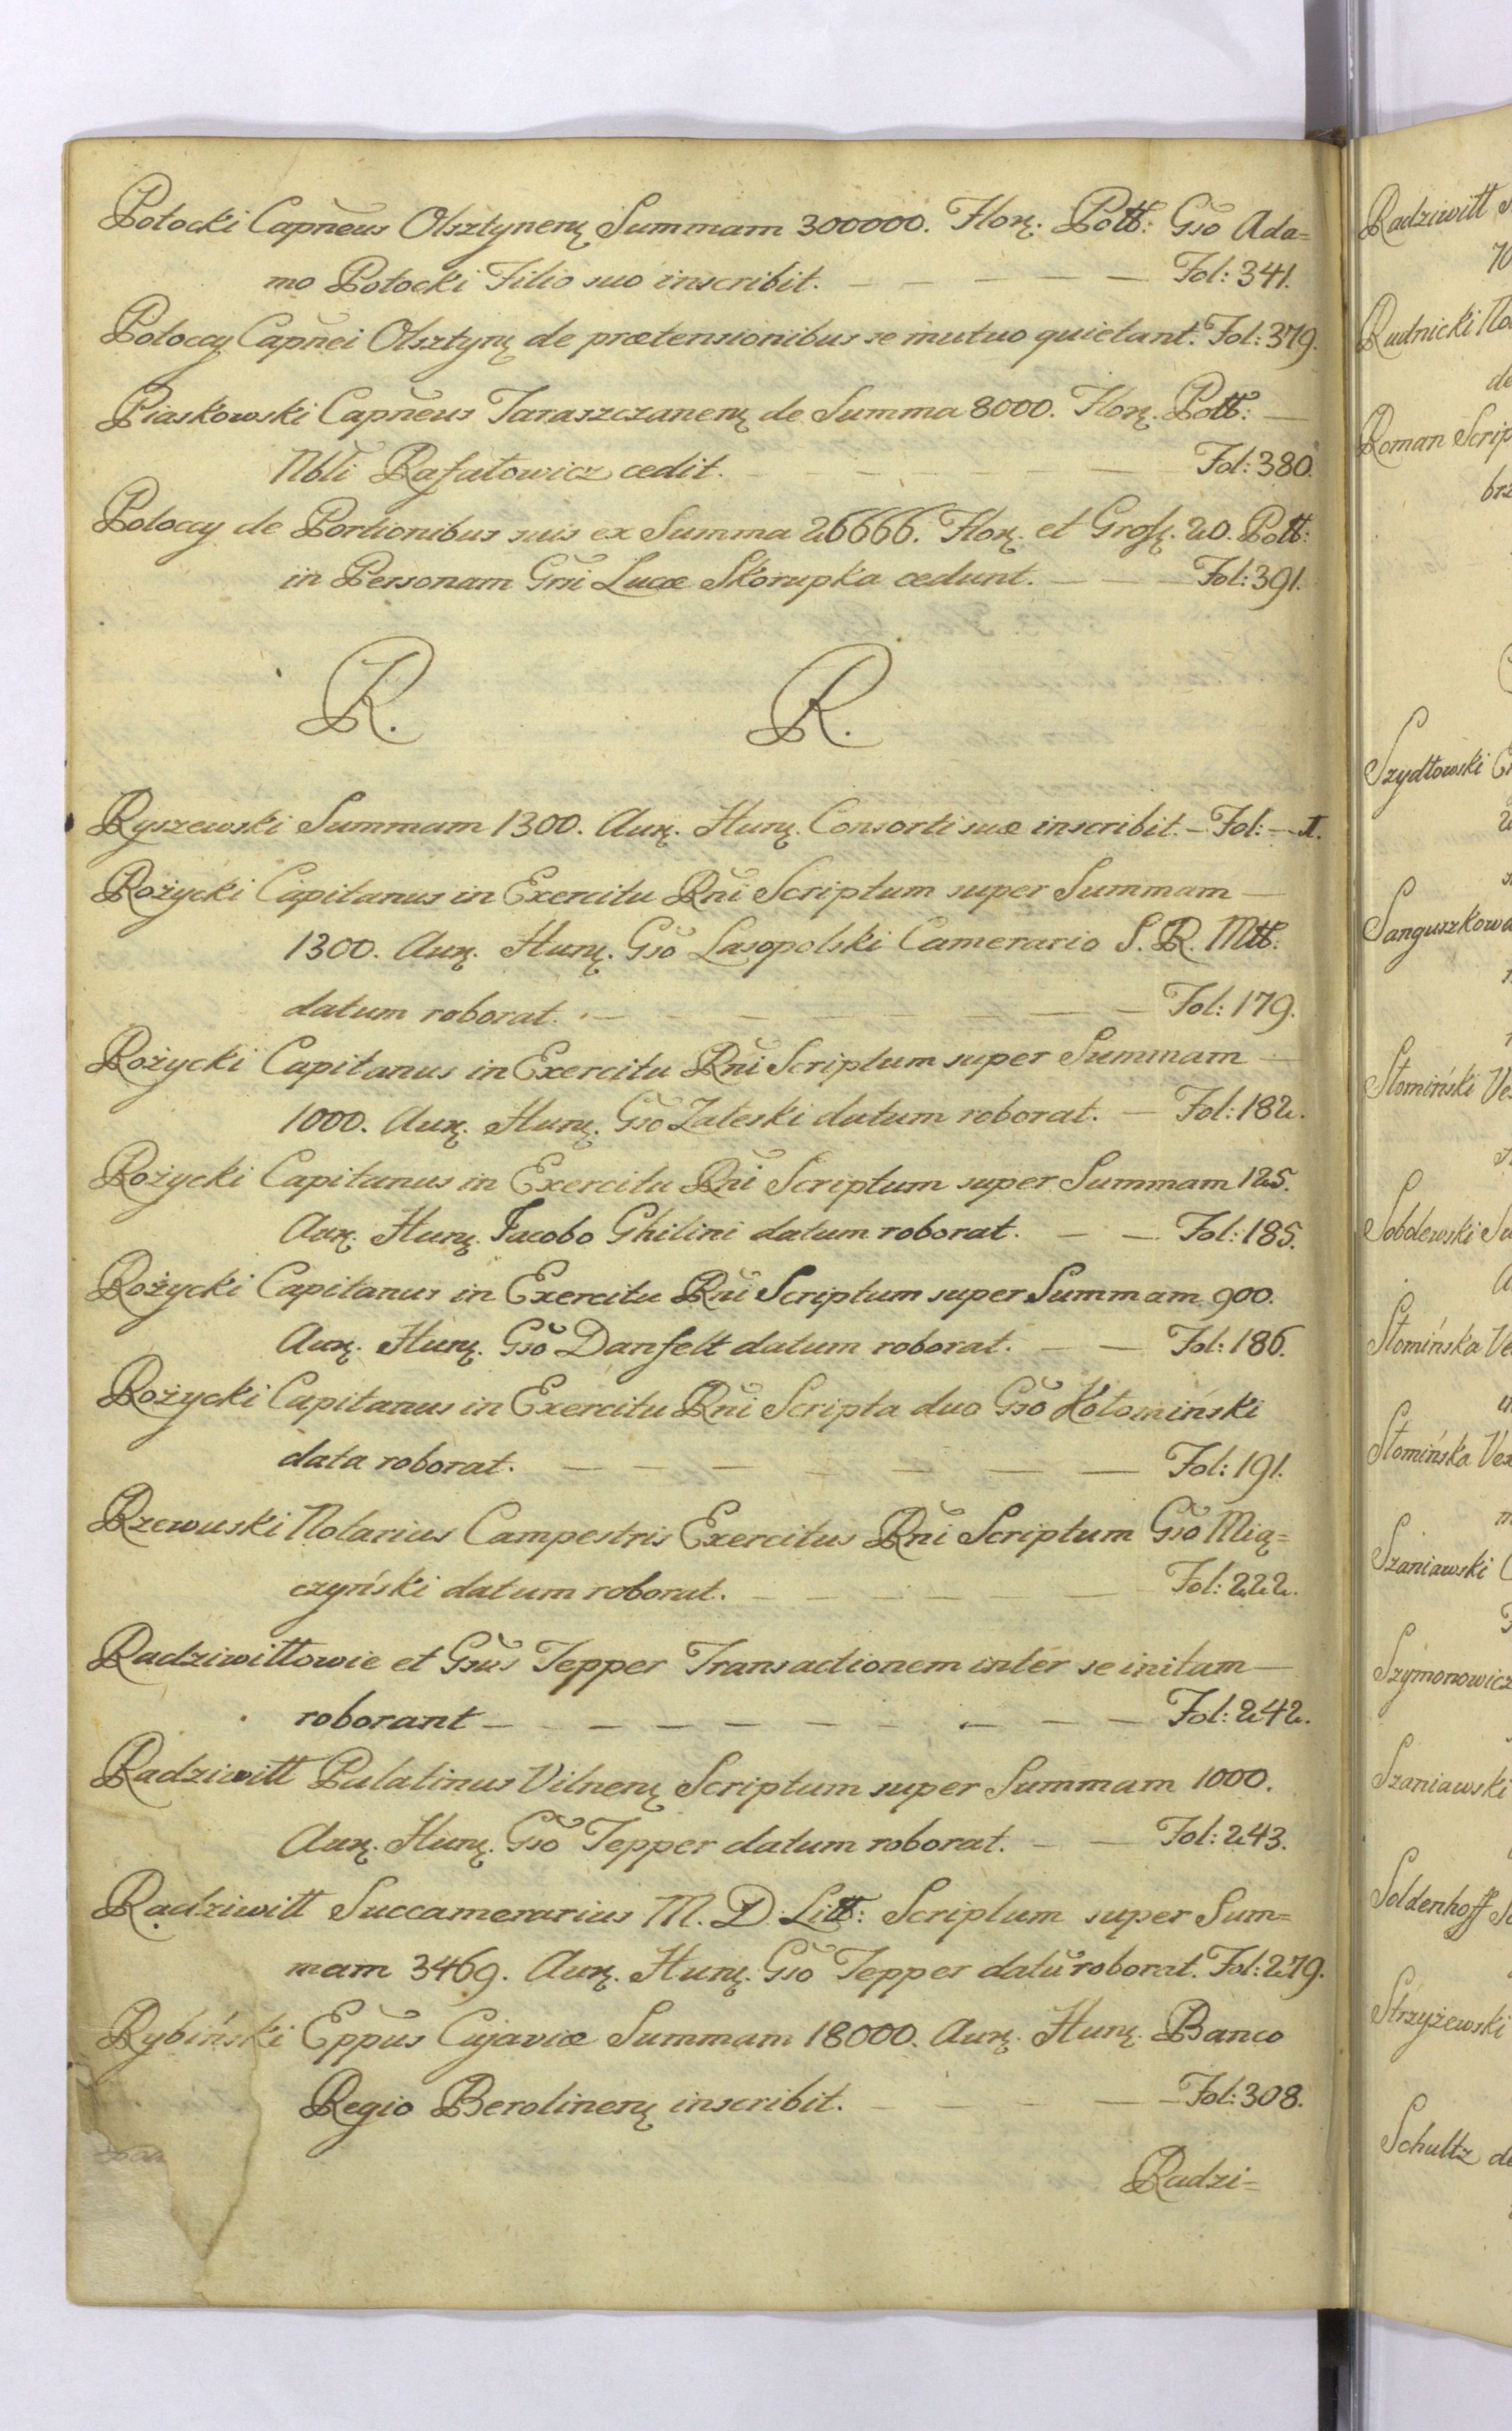 Potocki Capneus Olsztynenę Summam 300000. Florę. Poll: Gso Ada=
mo Potocki Filio suo inscribit. — — — — Fol: 341.
Potoccy Capnei Olsztynę de prætensionibus se mutuo quietant. Fol: 379.
Piaskowski Capneus Taraszczanenę de Summa 8000. Florę. Poll: —
Nbli Rafałowicz cedit. — — — — Fol: 380.
Potoccy de Portionibus suis ex Summa 26666. Florę. et Grosę. 20. Poll:
in Personam Gni Lucæ Skorupka cedunt. — — Fol: 391.
R. R.
Ryszewski Summam 1300. Aurę. Hunę. Consorti suæ inscribit. — Fol: — 1.
Rożycki Capitanus in Exercitu Rni Scriptum super Summam —
1300. Aurę. Hunę. Gso Lasopolski Camerario S. R. Mtt:
datum roborat. — — — — — Fol: 179.
Rożycki Capitanus in Exercitu Rni Scriptum super Summam —
1000. Aurę. Hunę. Gso Zaleski datum roborat. — Fol: 182.
Rożycki Capitanus in Exercitu Rni Scriptum super Summam 125.
Aurę. Hunę. Jacobo Ghilini datum roborat. — — Fol: 185.
Rożycki Capitanus in Exercitu Rni Scriptum super Summam 900.
Aurę. Hunę. Gso Danfelt datum roborat. — — Fol: 186.
Rożycki Capitanus in Exercitu Rni Scripta duo Gso Kołominski
data roborat. — — — — — — Fol: 191.
Rzewuski Notarius Campestris Exercitus Rni Scriptum Gso Mią=
czyński datum roborat. — — — — — Fol: 222.
Radziwiłłowie et Gsus Tepper Transactionem inter se initam —
roborant — — — — — — — — Fol: 242.
Radziwiłł Palatinus Vilnenę Scriptum super Summam 1000.
Aurę. Hunę. Gso Tepper datum roborat. — — Fol: 243.
Radziwiłł Succamerarius M. D. Litt: Scriptum super Sum=
mam 3469. Aurę. Hunę. Gso Tepper datũ roborat. Fol: 279.
Rybiński Eppus Cujaviæ Summam 18000. Aurę. Hunę. Banco
Regio Berolinenę inscribit. — — — — Fol: 308.
Radzi=
Radziwiłł
Rudnicki
de
Roman Scrip
brz
Szydłowski
Sanguszkowa
Słomiński
Sobolewski
Słomińska
Słomińska Vex
Szaniawski
Szymonowicz
Szaniawski
Soldenhoff
Strzyżewski
Schultz de